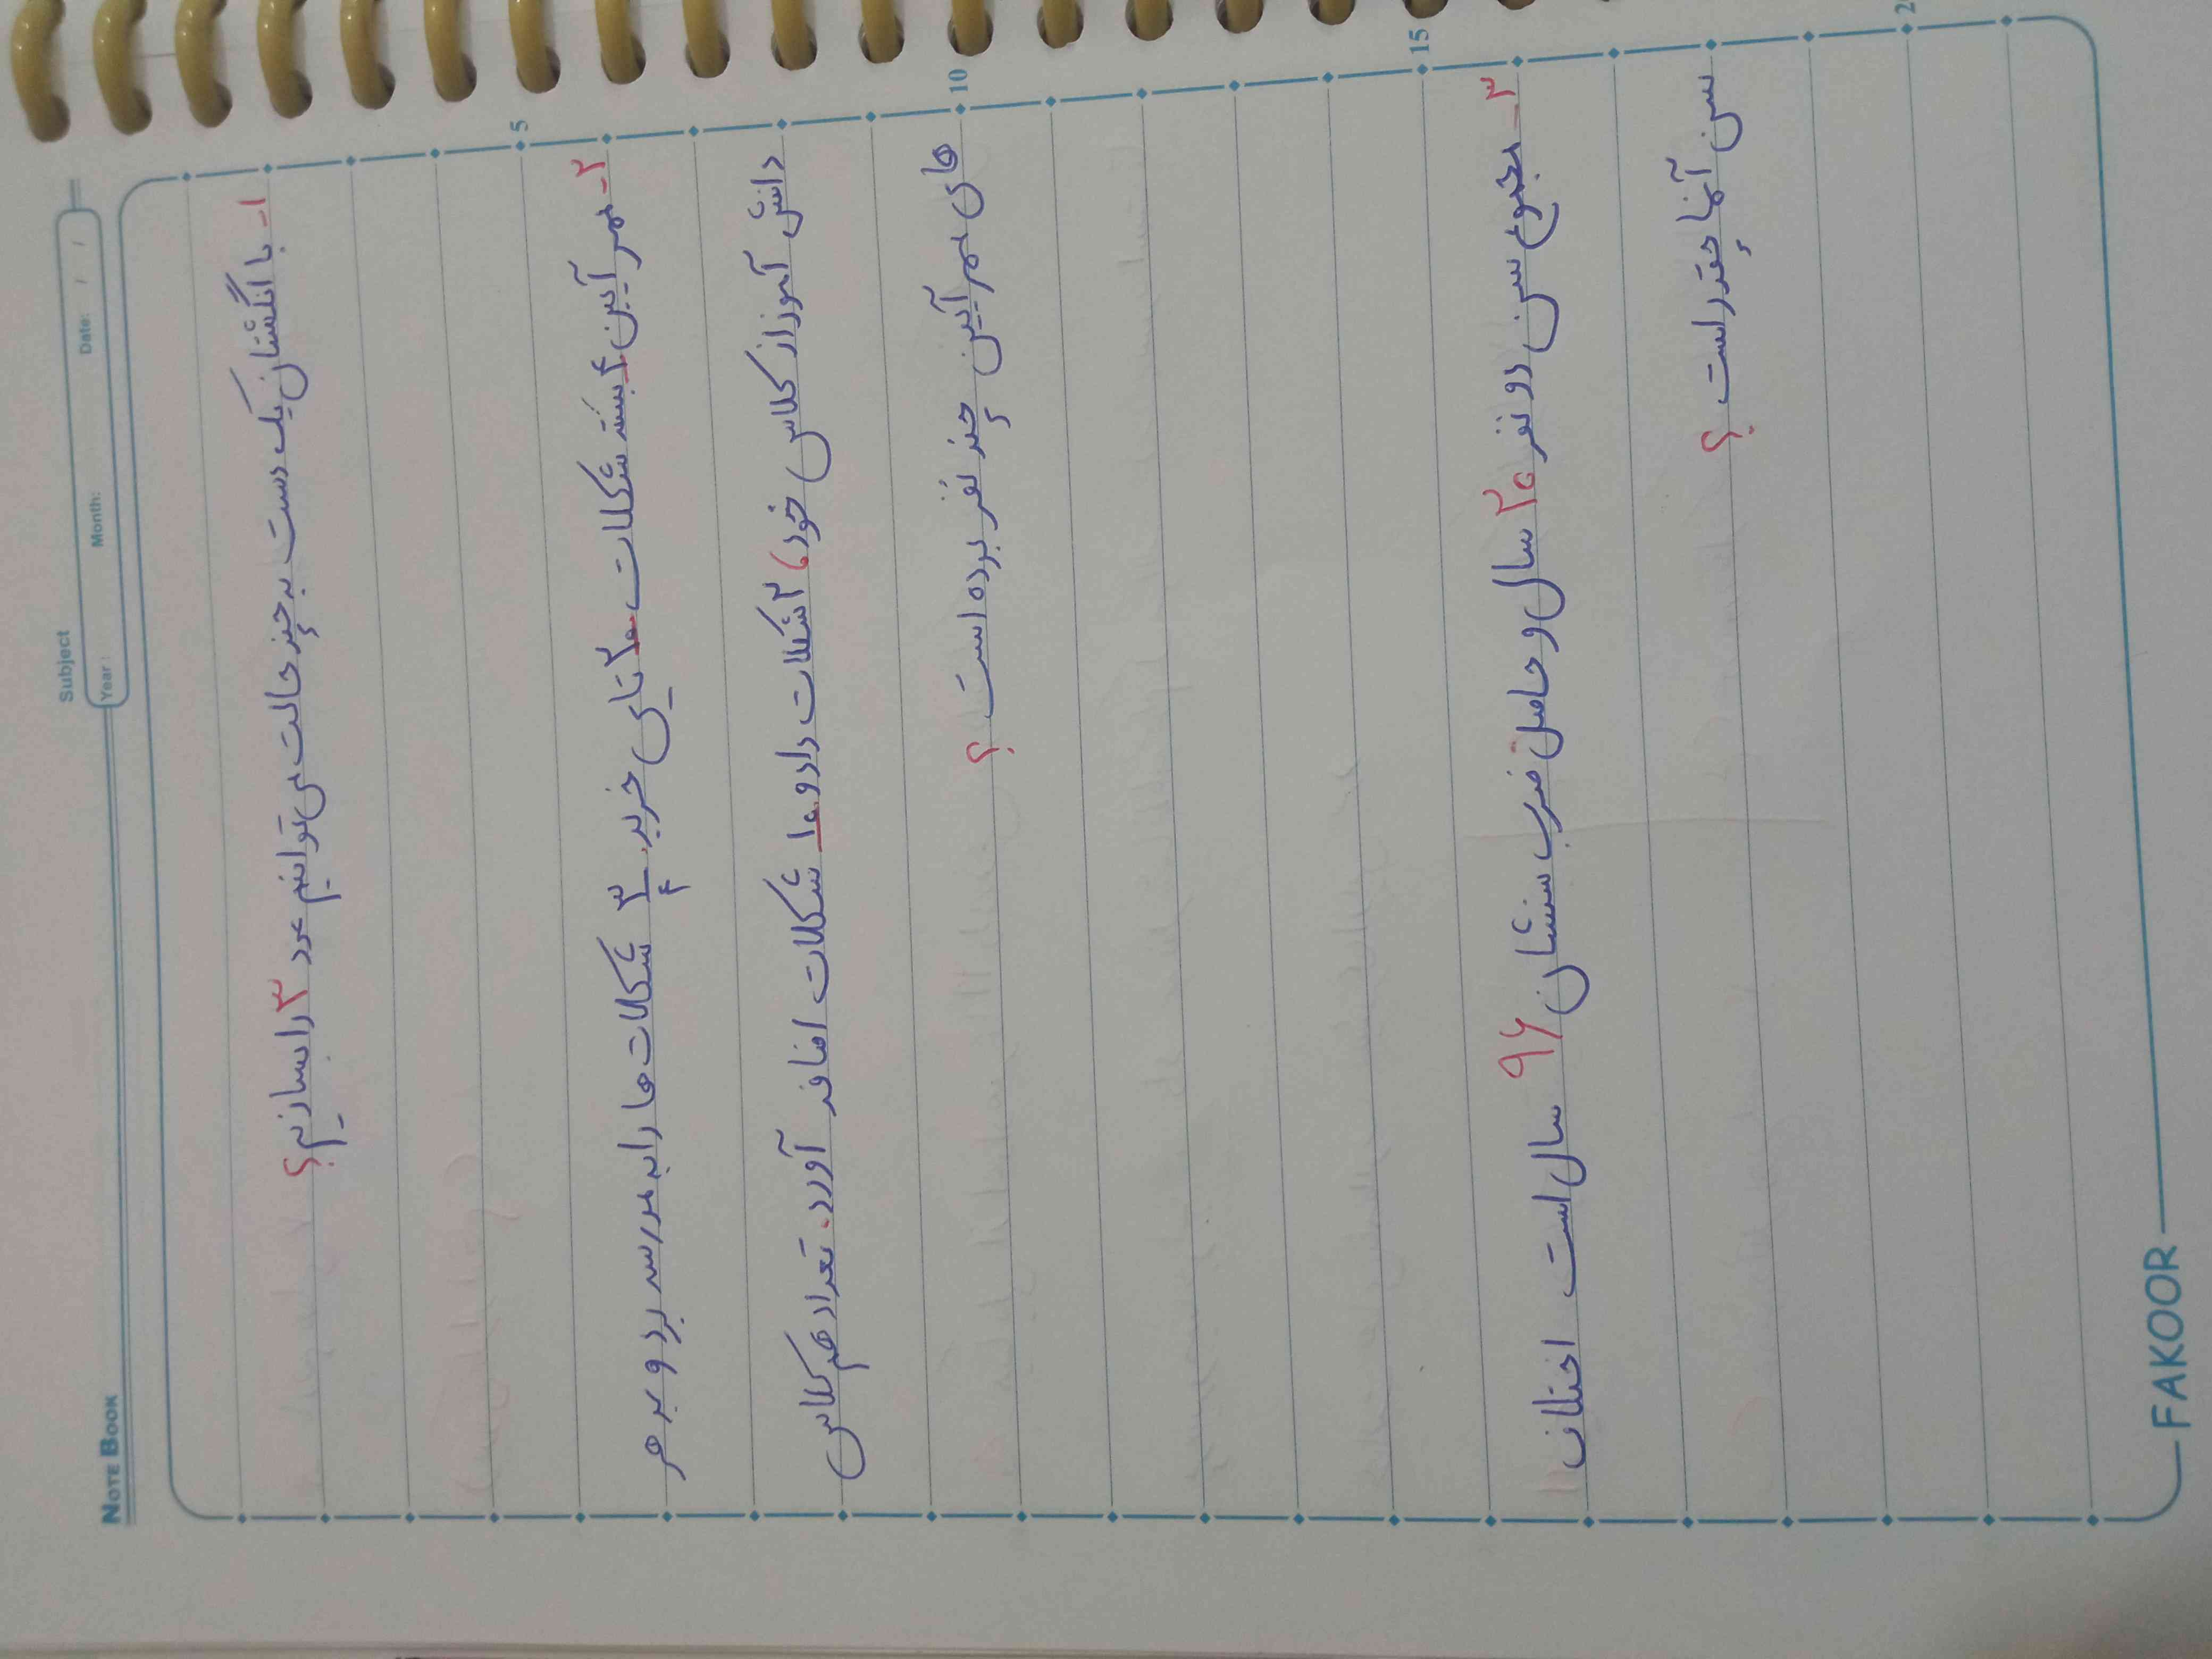 NOTE BOOK
Subject
Year: Month: Date: / /
۱- با انگشتان یک دست به چند حالت می‌توانیم عدد ۳ را بسازیم؟
5
۲- مهرآیین ۴ بسته شکلات ۲۰ تایی خرید. ۳/۴ شکلات ها را به مدرسه برد و به هر
دانش آموز از کلاس خود، ۲ شکلات داد و ۱۰ شکلات اضافه آورد. تعداد هم کلاس
10
های مهرآیین چند نفر بوده است؟
15
۳- مجموع سن دو نفر ۲۰ سال و حاصل ضرب سنشان ۹۶ سال است اختلاف
سن آنها چقدر است؟
FAKOOR